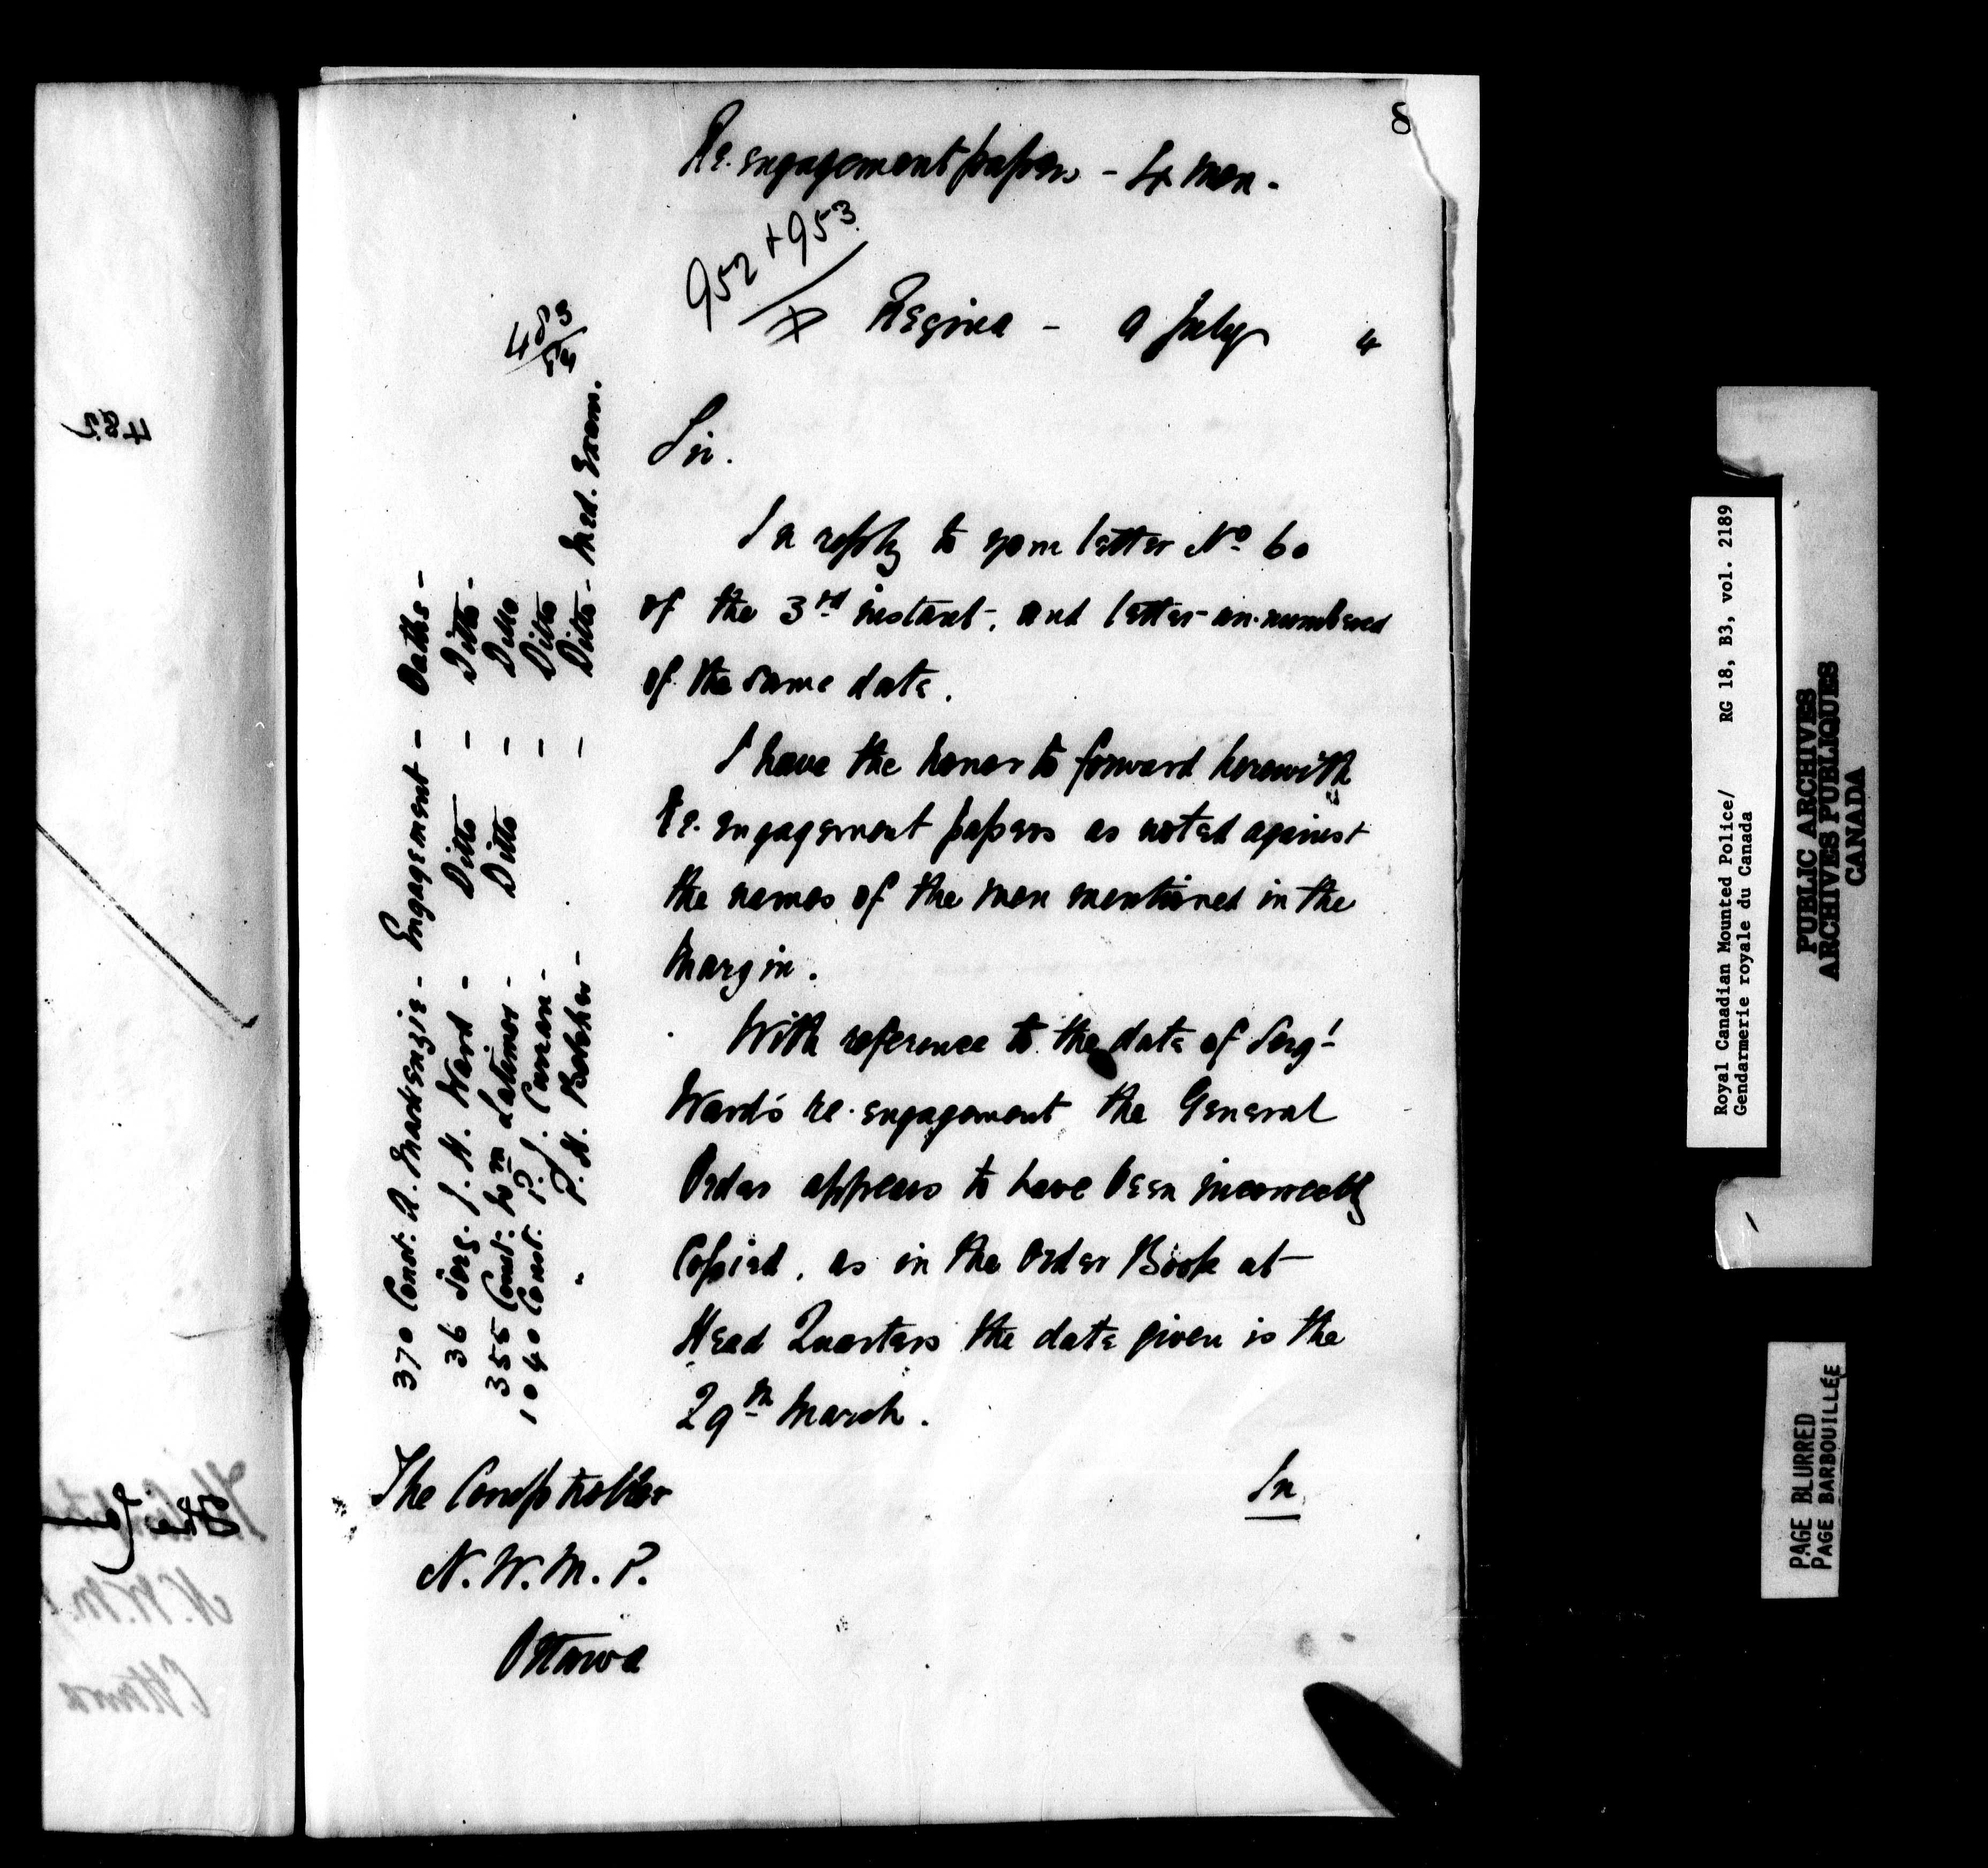 8
Re. engagement papers - 4 men.
952 + 953
483/84
Regina - 9 July 4
Sir.
In reply to your letter No 60
of the 3rd instant, and letter un-numbered
of the same date.
I have the honor to forward herewith
Re. engagement papers as noted against
the names of the men mentioned in the
Margin.
With reference to the date of Sergt
Ward's re-engagement the General
Order appears to have been incorrectly
Copied, as in the Order Book at
Head Quarters the date given is the
29th March.
In
The Comptroller
N. W. M. P.
Ottawa
370 Const. A. MacKenzie - Engagement - Oaths -
36 Serg. J. H. Ward - Ditto - Ditto -
355 Const. Wm Latimer - Ditto - Ditto
1040 Const. P. J. Curran - - Ditto
" P. H. - - Ditto - Med. Exam.
482
N. W. M. P
Ottawa
Royal Canadian Mounted Police/ RG 18, B3, vol. 2189
Gendarmerie royale du Canada
PUBLIC ARCHIVES
ARCHIVES PUBLIQUES
CANADA
PAGE BLURRED
PAGE BARBOUILLÉE